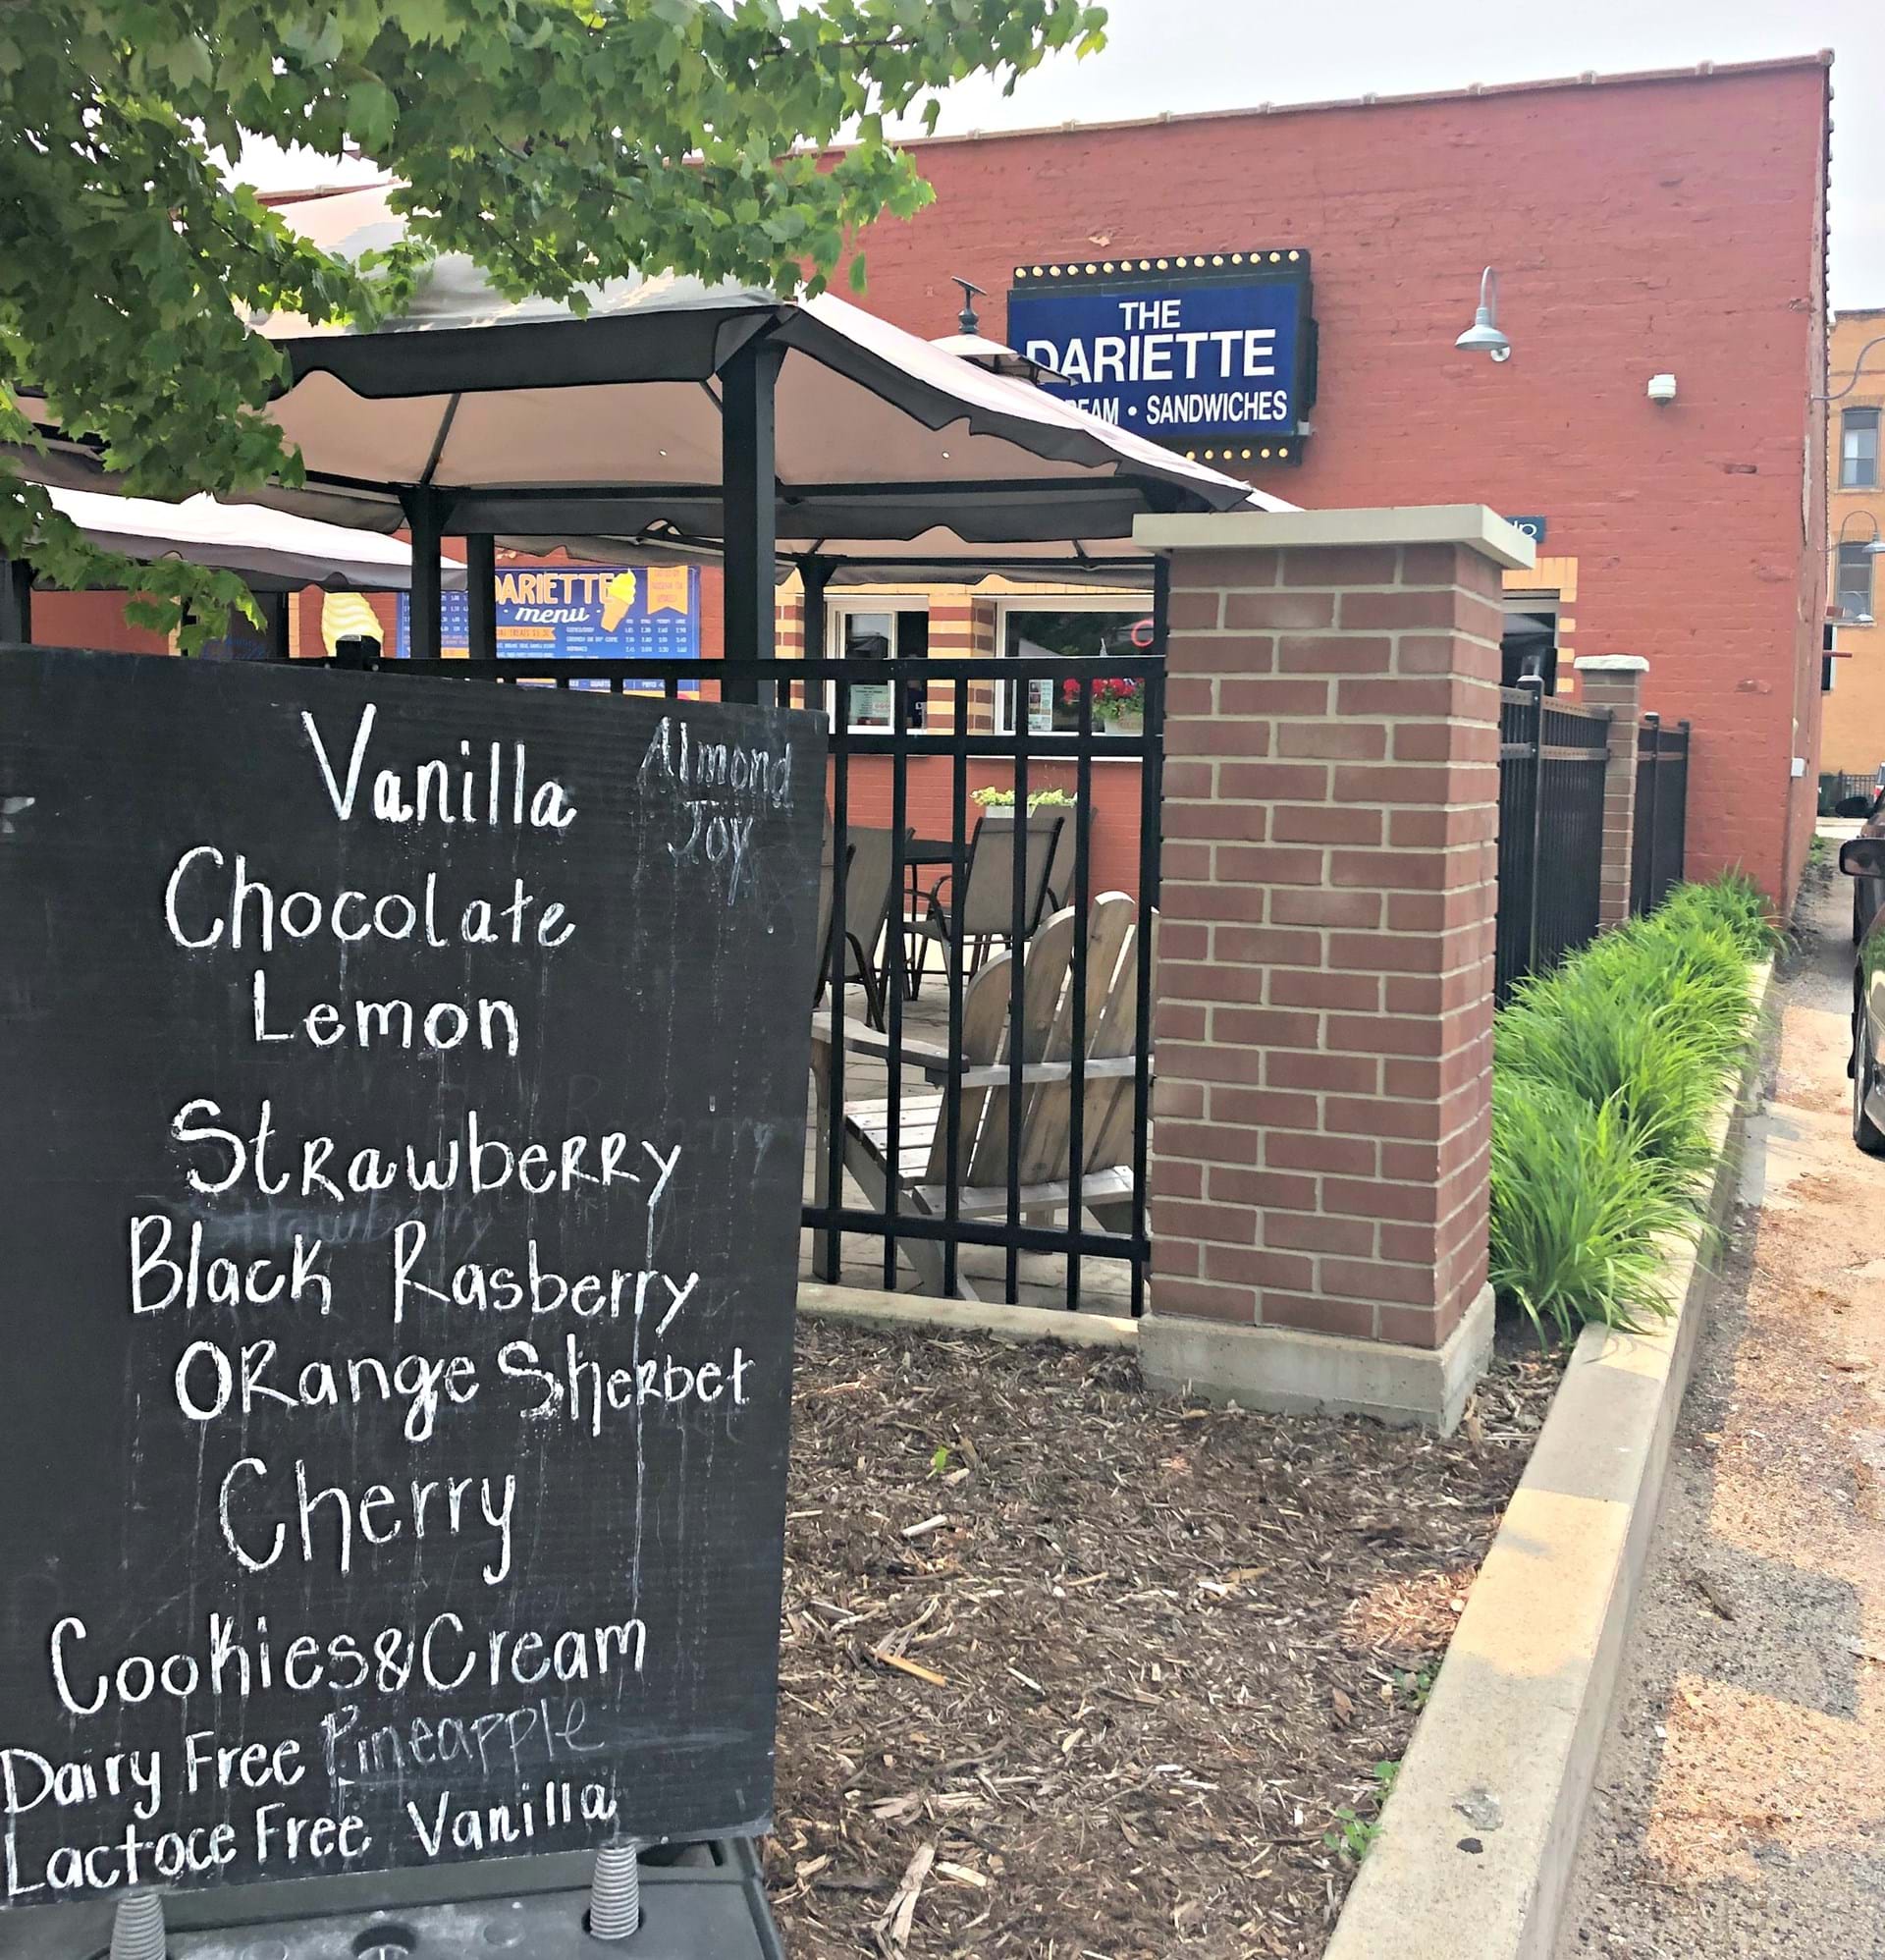 THE
DARIETTE
REAM • SANDWICHES
DARIETTE
menu
Vanilla
Almond
Joy
Chocolate
Lemon
Strawberry
Strawberry
Black Rasberry
Orange Sherbet
Cherry
Cookies&Cream
Dairy Free Pineapple
Lactoce Free Vanilla